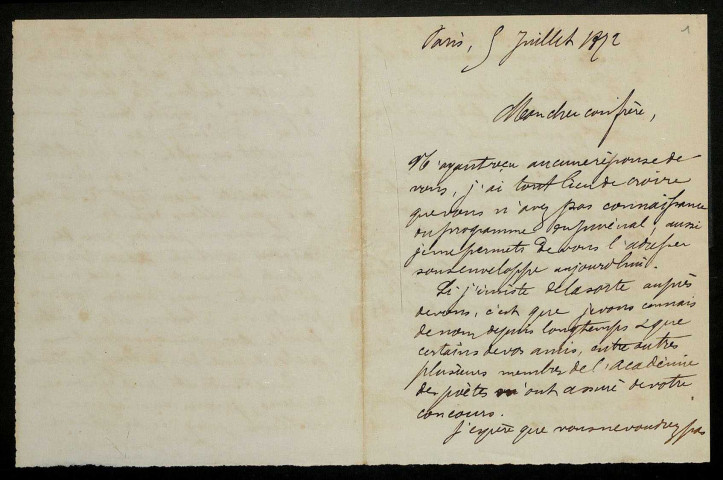 1
Paris, 5 Juillet 1872
Mon cher confrère,
N'ayant reçu aucune réponse de
vous, j'ai tout lieu de croire
que vous n'avez pas connaissance
du programme du Juvénal, aussi
je me permets de vous l'adresser
sous enveloppe aujourd'hui.
Si j'insiste de la sorte auprès
de vous, c'est que je vous connais
de nom depuis longtemps & que
certains de vos amis, entre autres
plusieurs membres de l'académie
des poètes m'ont assuré de votre
concours.
J'espère que vous ne voudrez pas